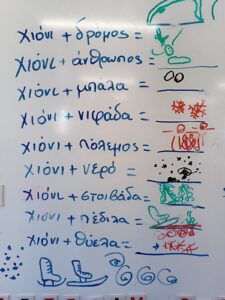 χιόνι + δρόμος =
χιόνι + άνθρωπος =
χιόνι + μπάλα =
χιόνι + νιφάδα =
χιόνι + πόλεμος =
χιόνι + νερό =
χιόνι + στοιβάδα =
χιόνι + πέδιλα =
χιόνι + θύελα =